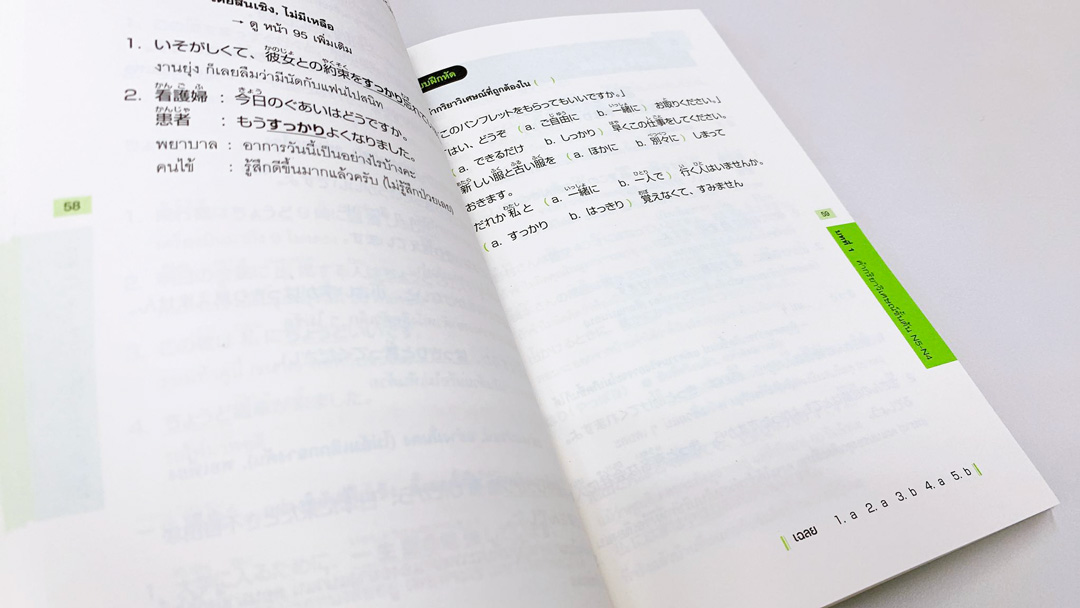 โดยสิ้นเชิง, ไม่มีเหลือ
→ ดู หน้า 95 เพิ่มเติม
1. いそがしくて、彼女との約束をすっかり
งานยุ่ง ก็เลยลืมว่ามีนัดกับแฟนไปสนิท
2. 看護婦 : 今日のぐあいはどうですか。
患者 : もうすっかりよくなりました。
พยาบาล : อาการวันนี้เป็นอย่างไรบ้างคะ
คนไข้ : รู้สึกดีขึ้นมากแล้วครับ (ไม่รู้สึกป่วยเลย)
58
แบบฝึกหัด
คำกริยาวิเศษณ์ที่ถูกต้องใน ( )
このパンフレットをもらってもいいですか。」
はい、どうぞ (a. ご自由に b. 一緒に) お取りください。」
(a. できるだけ b. しっかり) 早くこの仕事をしてください。
新しい服と古い服を (a. ほかに b. 別々に) しまって
おきます。
だれか私と (a. 一緒に b. 一人で) 行く人はいませんか。
(a. すっかり b. はっきり) 覚えなくて、すみません
59
บทที่ 1 คำกริยาวิเศษณ์ขั้นต้น N5-N4
เฉลย 1. a 2. a 3. b 4. a 5. b